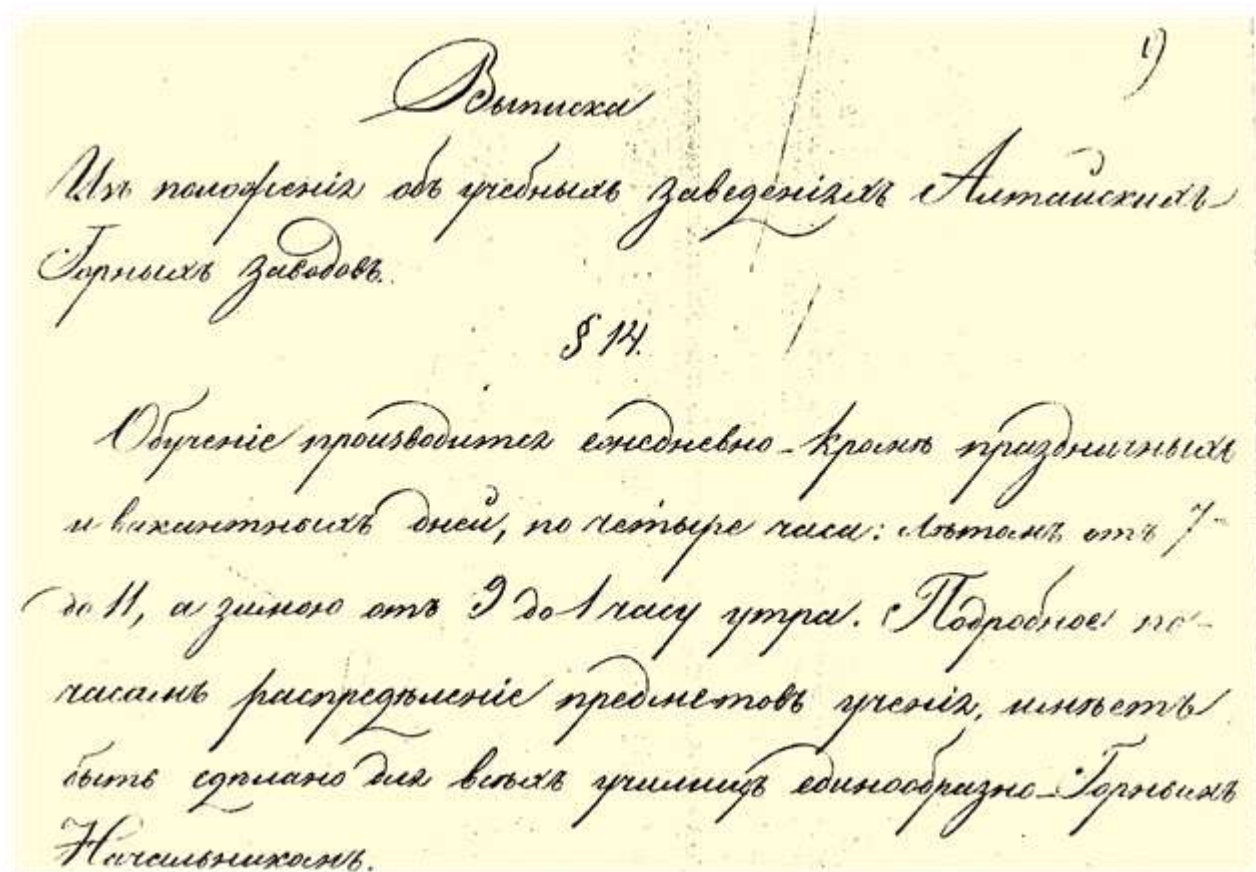 1)
Выписка
Изъ положенія объ учебныхъ заведеніяхъ Алтайскихъ
Горныхъ заводовъ.
§ 14.
Обученіе производится ежедневно - кромѣ праздничныхъ
и вакантныхъ дней, по четыре часа: лѣтомъ отъ 7-
до 11, а зимою отъ 9 до 1 часу утра. Подробное по-
часамъ распредѣленіе предметовъ ученія, имѣетъ
быть сдѣлано для всѣхъ училищъ единообразно - Горнымъ
Начальникомъ.